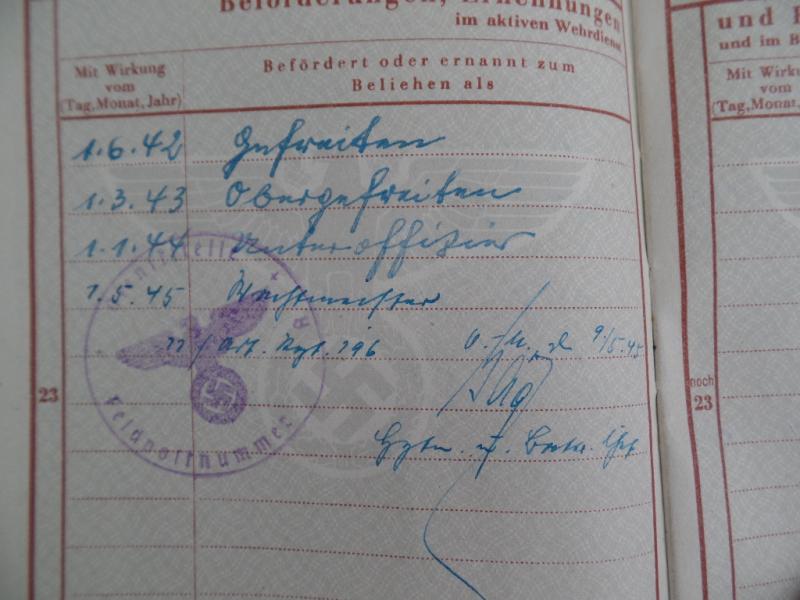 Beförderungen, Ernennungen
im aktiven Wehrdienst
Mit Wirkung
vom
(Tag, Monat, Jahr)
Befördert oder ernannt zum
Beliehen als
1.6.42 Gefreiten
1.3.43 Obergefreiten
1.1.44 Unteroffizier
1.5.45 Wachtmeister
11/Art. Rgt. 296 9/5.45
Hptm. u. Battr. Chef
23
Feldpostnummer
noch
23
und
und im
vom
(Tag, Monat,